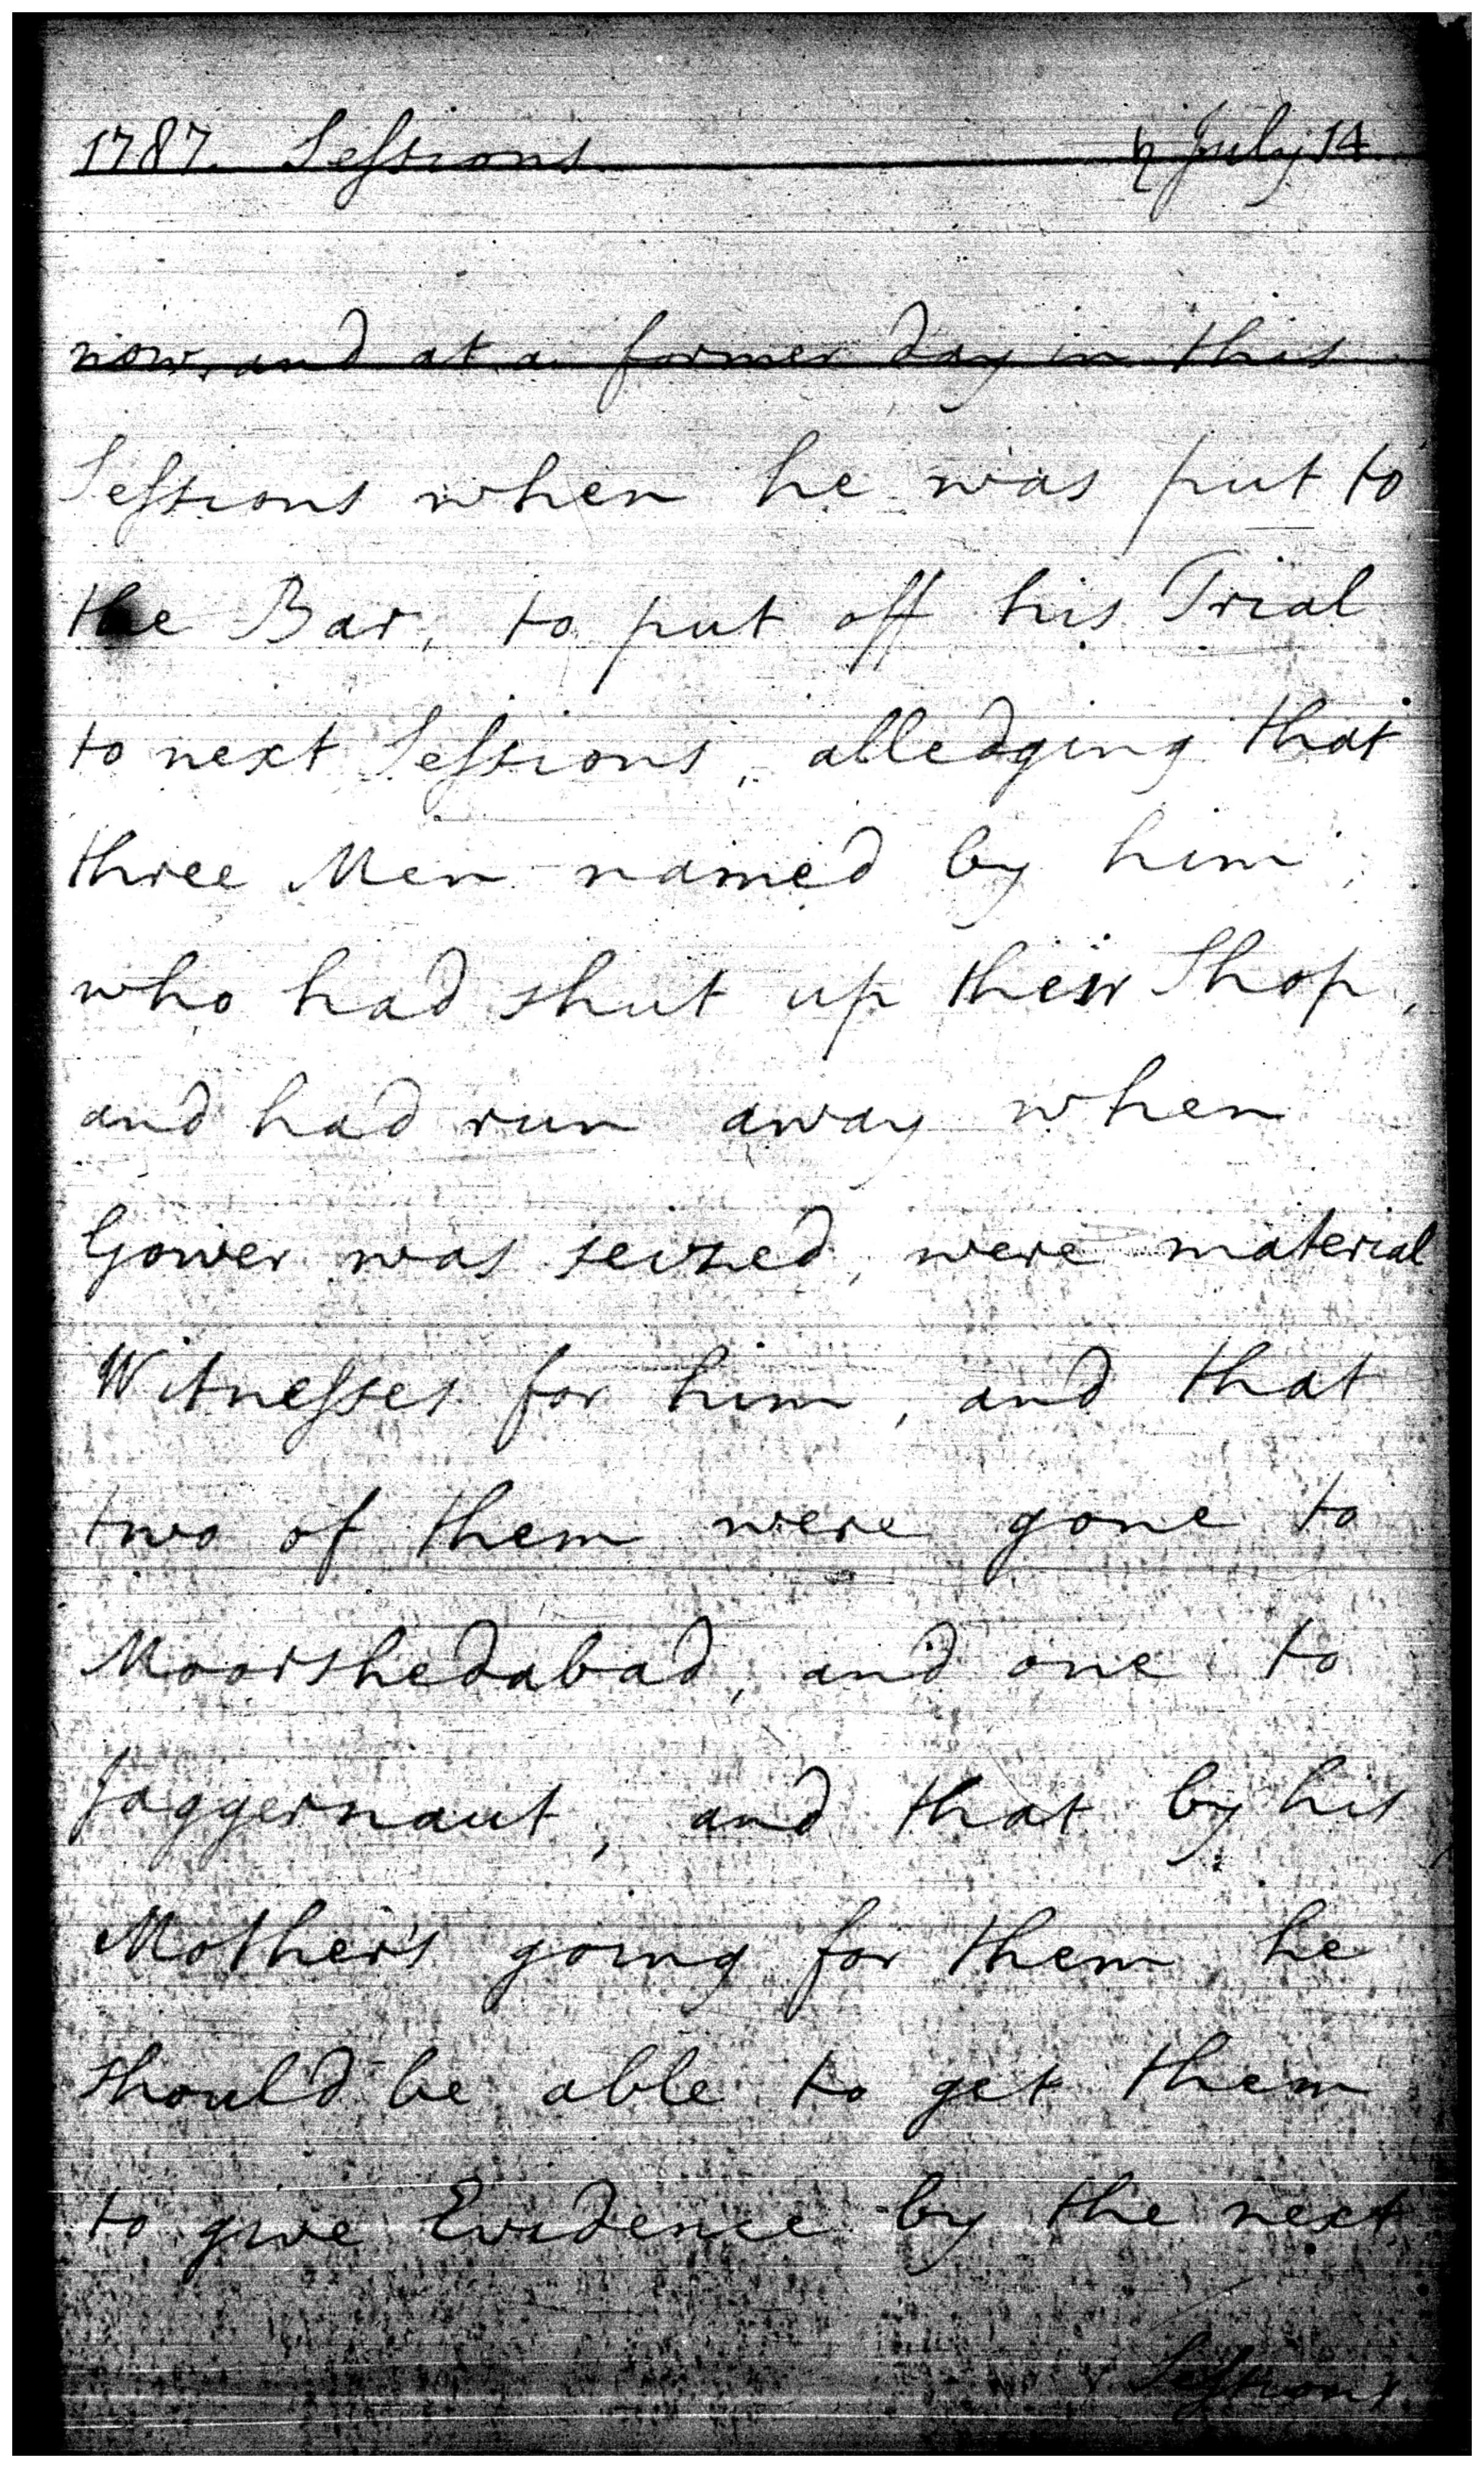 1787. Sessions ♄ July 14.
now, and at a former day in this
Sessions when he was put to
the Bar, to put off his Trial
to next Sessions, alledging that
three Men named by him,
who had shut up their Shop,
and had run away when
Gower was seized, were material
Witnesses for him, and that
two of them were gone to
Moorshedabad, and one to
Jaggernaut, and that by his
Mother's going for them he
should be able to get them
to give Evidence by the next
Sessions